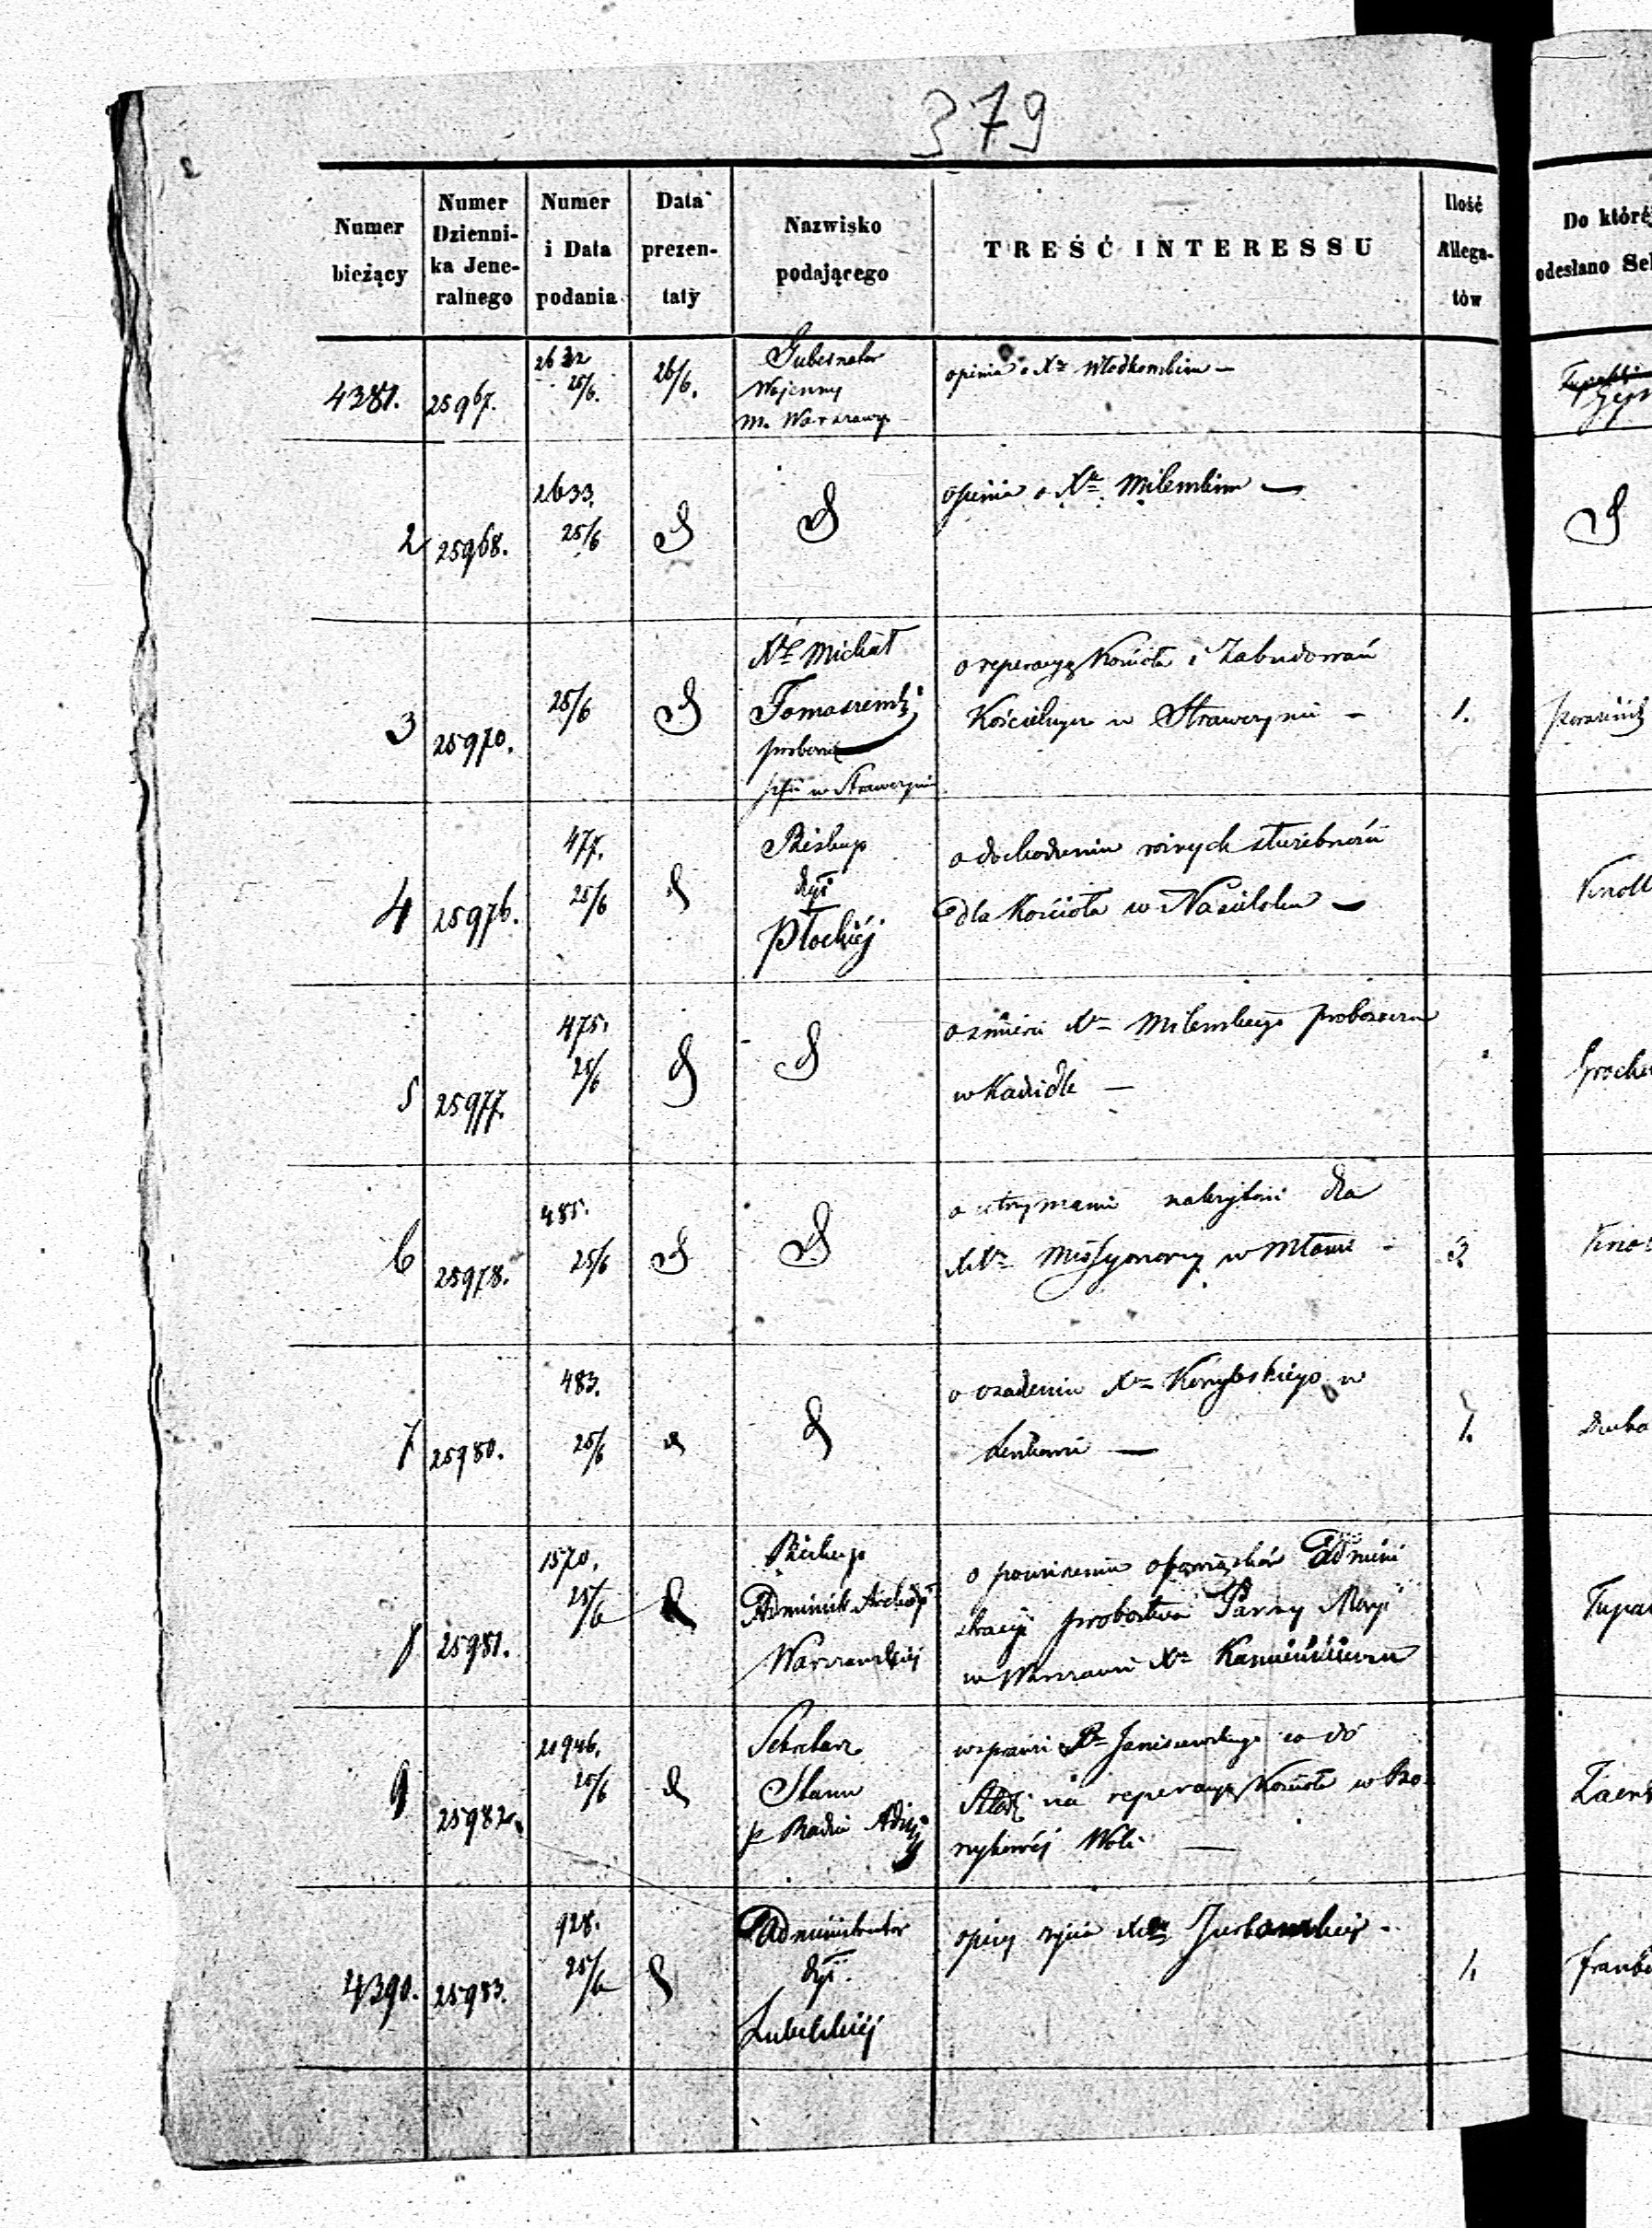 379
Numer bieżący
Numer Dzienni- ka Jene- ralnego
Numer i Data podania
Data prezen- taty
Nazwisko podającego
TREŚĆ INTERESSU
Ilość Allega- tów
Do której odesłano
4381. 25967. 2632 25/6. 26/6. Gubernator
Wojenny
m. Warszawy
opinia o Xu Włodkowskim —
2 25968. 2633. 25/6
opinia o Xu Milewskim —
3 25970. 25/6 X. Michał
Tomaszewski
proboszcz
w Strawczynie
o reperacyę Kościoła i Zabudowań
Kościelnych w Strawczynie — 1.
4 25976. 477. 25/6 Biskup
dyi
Płockiéj
o dochodzeniu różnych służebności
dla Kościoła w Nasielsku —
5 25977. 475. 25/6
o śmierci Xa Milewskiego proboszcza
w Kadzidle —
6 25978. 485. 25/6
o utrzymanie należytości dla
XXy Missyonarzy w Mławie - 3.
7 25980. 483. 25/6
o osadzeniu Xa Korybskiego w
— 1.
8 25981. 1570. 25/6 Biskup
Administ. Archidyi
Warszawskiéj
o powierzeniu obowiązków Admini
stracyi probostwa Panny Maryi
w Warszawie Xu
9 25982. 21946. 25/6 Sekretarz
Stanu
p Radzie Adyj
w sprawie Janiszewskiego co do
na reperacyę Kościoła w Bo-
Woli —
4390. 25983. 928. 25/6 Administrator
dyi.
Lubelskiéj
opisy życia - 1.